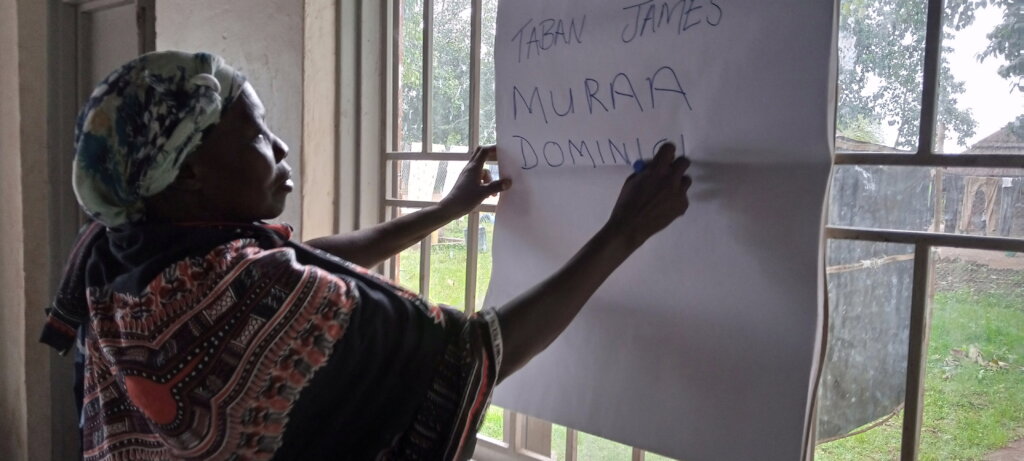 TABAN JAMES
MURAA
DOMINIC